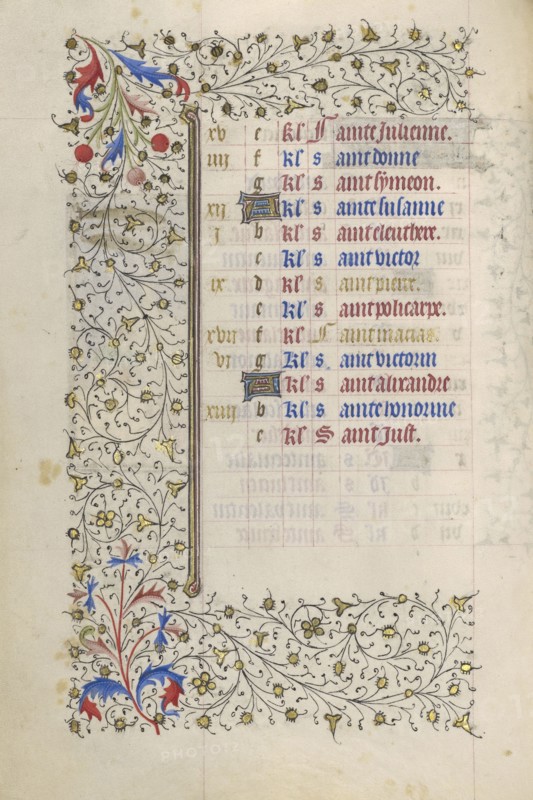 xv e kl S ainte Julienne.
iiij f kl s aint donne
g kl s aint symeon.
xij A kl s ainte susanne
j b kl s aint eleuthere.
c kl s aint victor
ix d kl s aint pierre.
e kl s aint policarpe.
xvij f kl S aint macias.
vj g kl s aint victorin
A kl s aint alixandre
xiiij b kl s ainte honorine
c kl S aint Just.